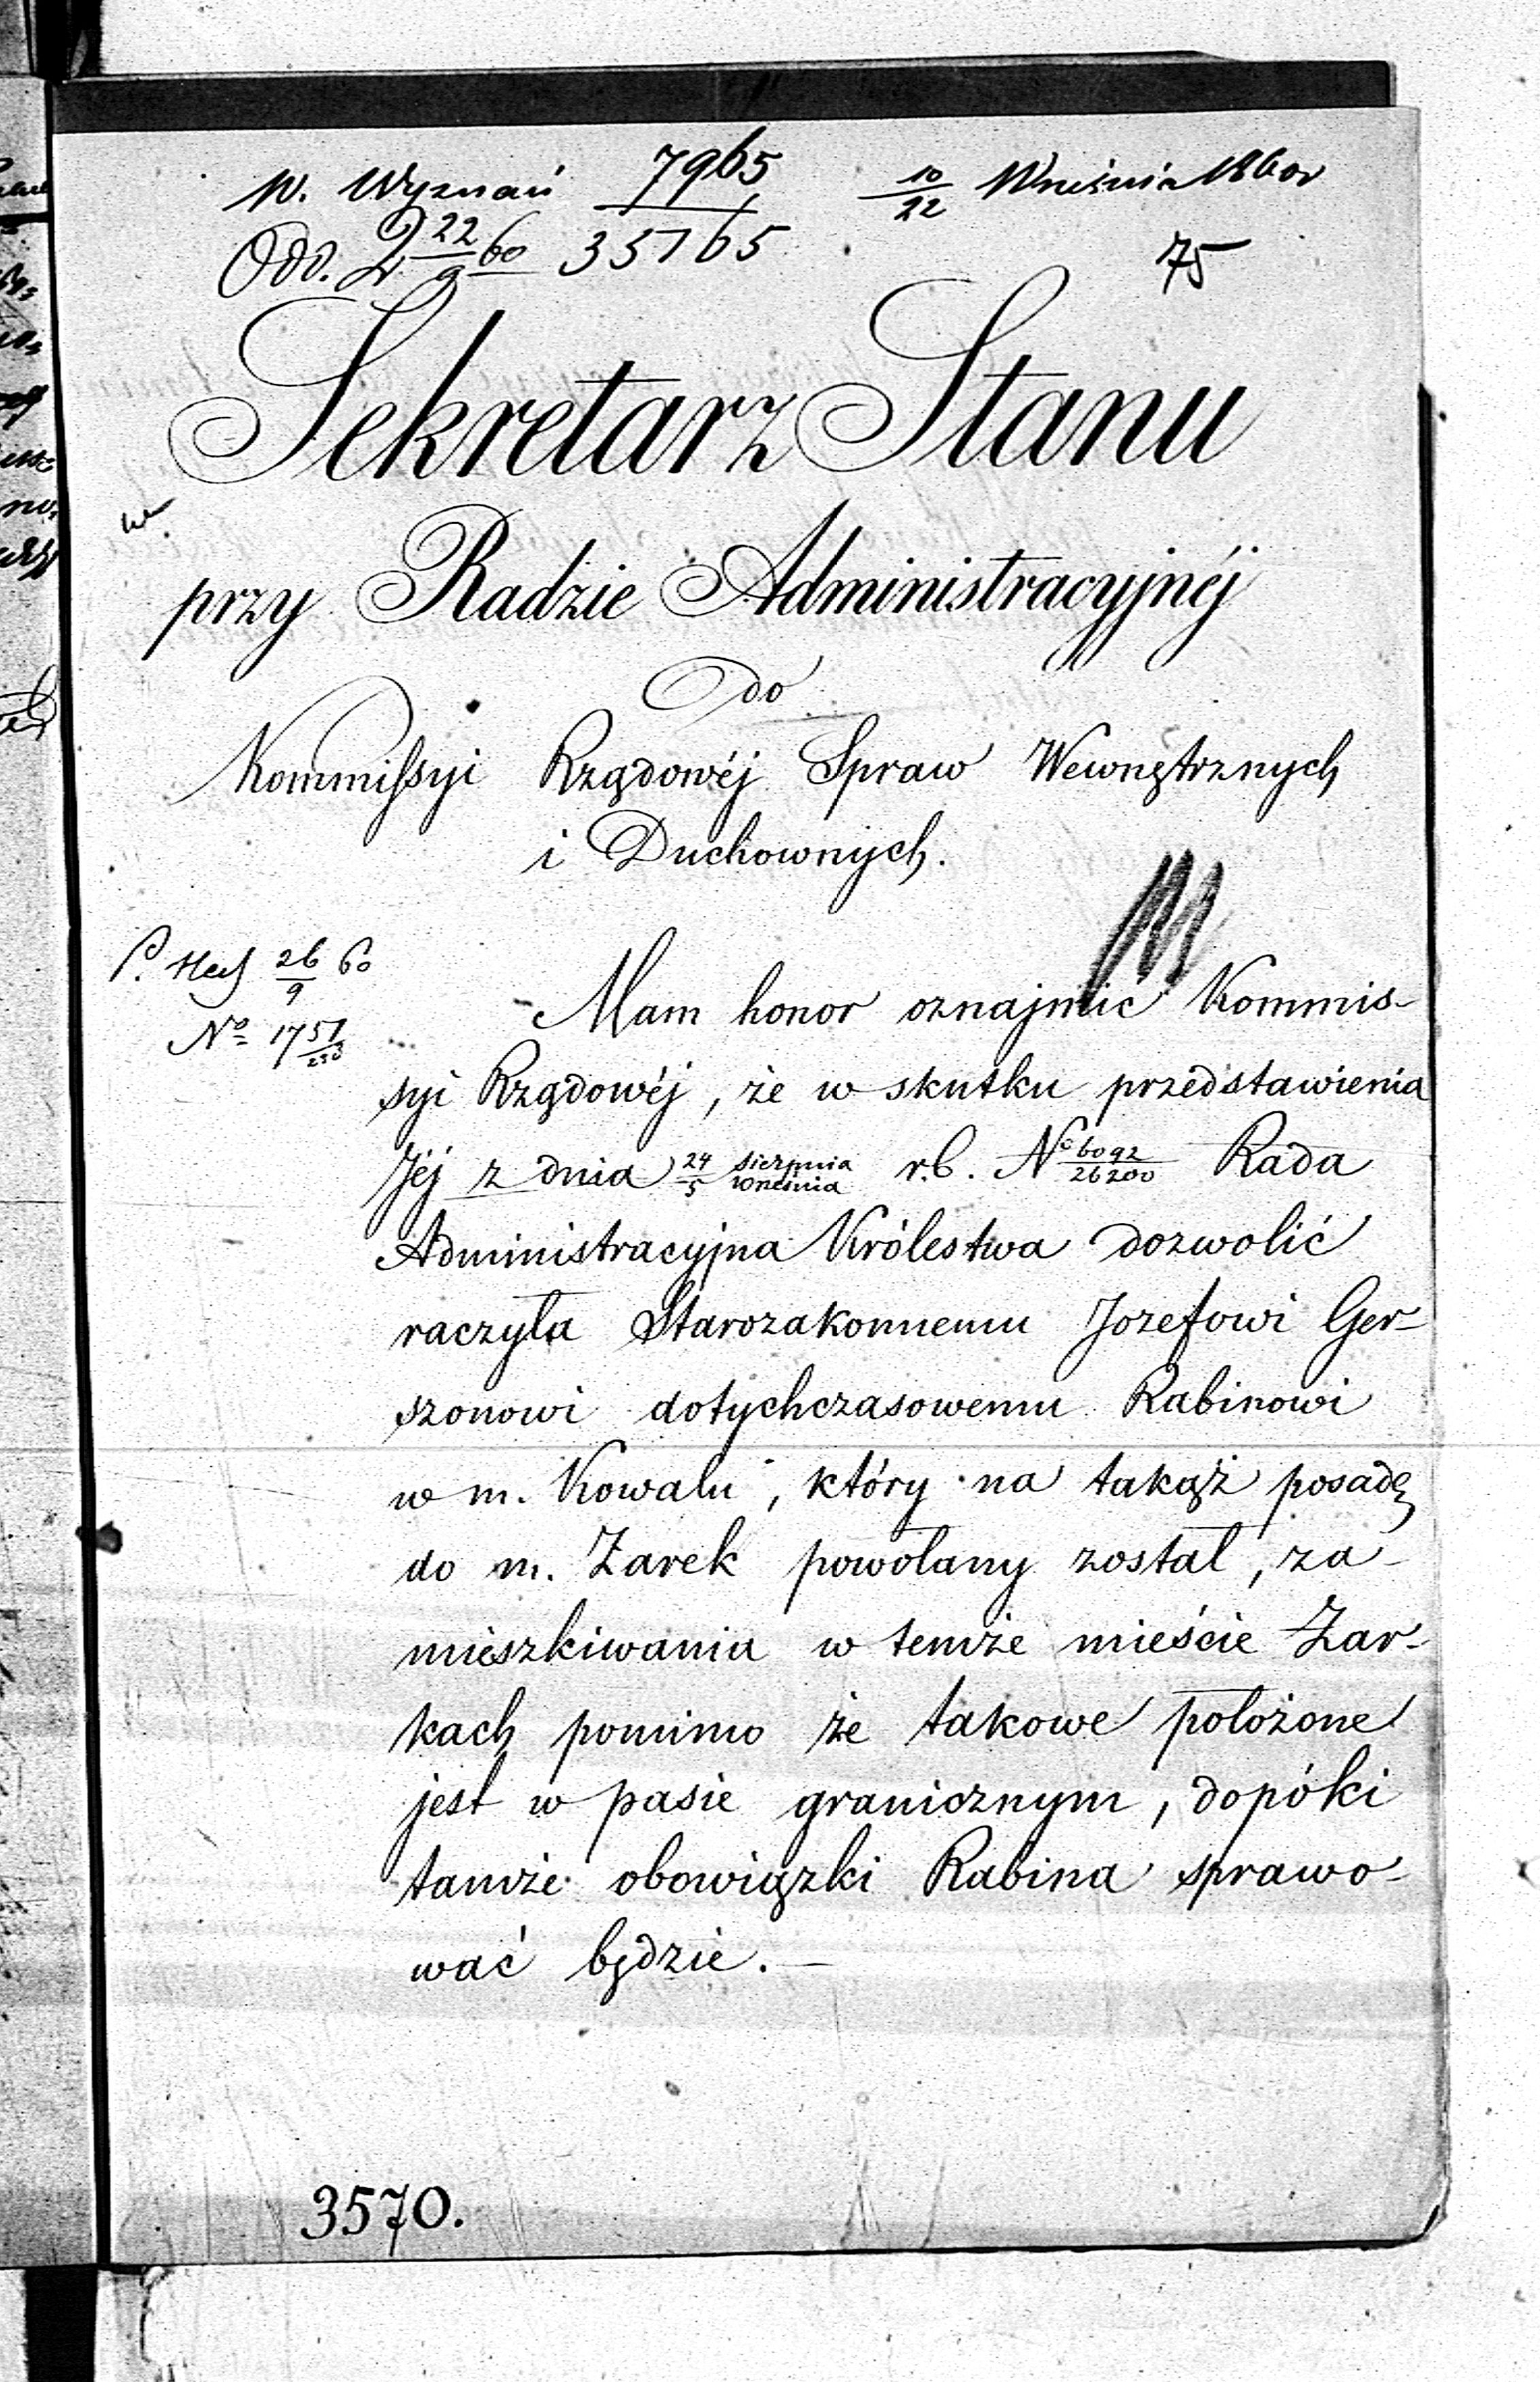 W. Wyznań 7965/35165 10/22 Września 1860 r
Odd. 2 22/9 60
75
Sekretarz Stanu
przy Radzie Administracyjnéj
Do
Kommissyi Rządowéj Spraw Wewnętrznych
i Duchownych.
26/9 60
No 1751
Mam honor oznajmić Kommis-
syi Rządowéj, że w skutku przedstawienia
Jéj z dnia 24 Sierpnia/5 Września r.b. No 6092/26200 Rada
Administracyjna Królestwa dozwolić
raczyła Starozakonnemu Jozefowi Ger-
szonowi dotychczasowemu Rabinowi
w m. Kowalu, który na takąż posadę
do m. Żarek powołany został, za-
mieszkiwania w temże mieście Żar-
kach pomimo że takowe położone
jest w pasie granicznym, dopóki
tamże obowiązki Rabina sprawo-
wać będzie. —
3570.